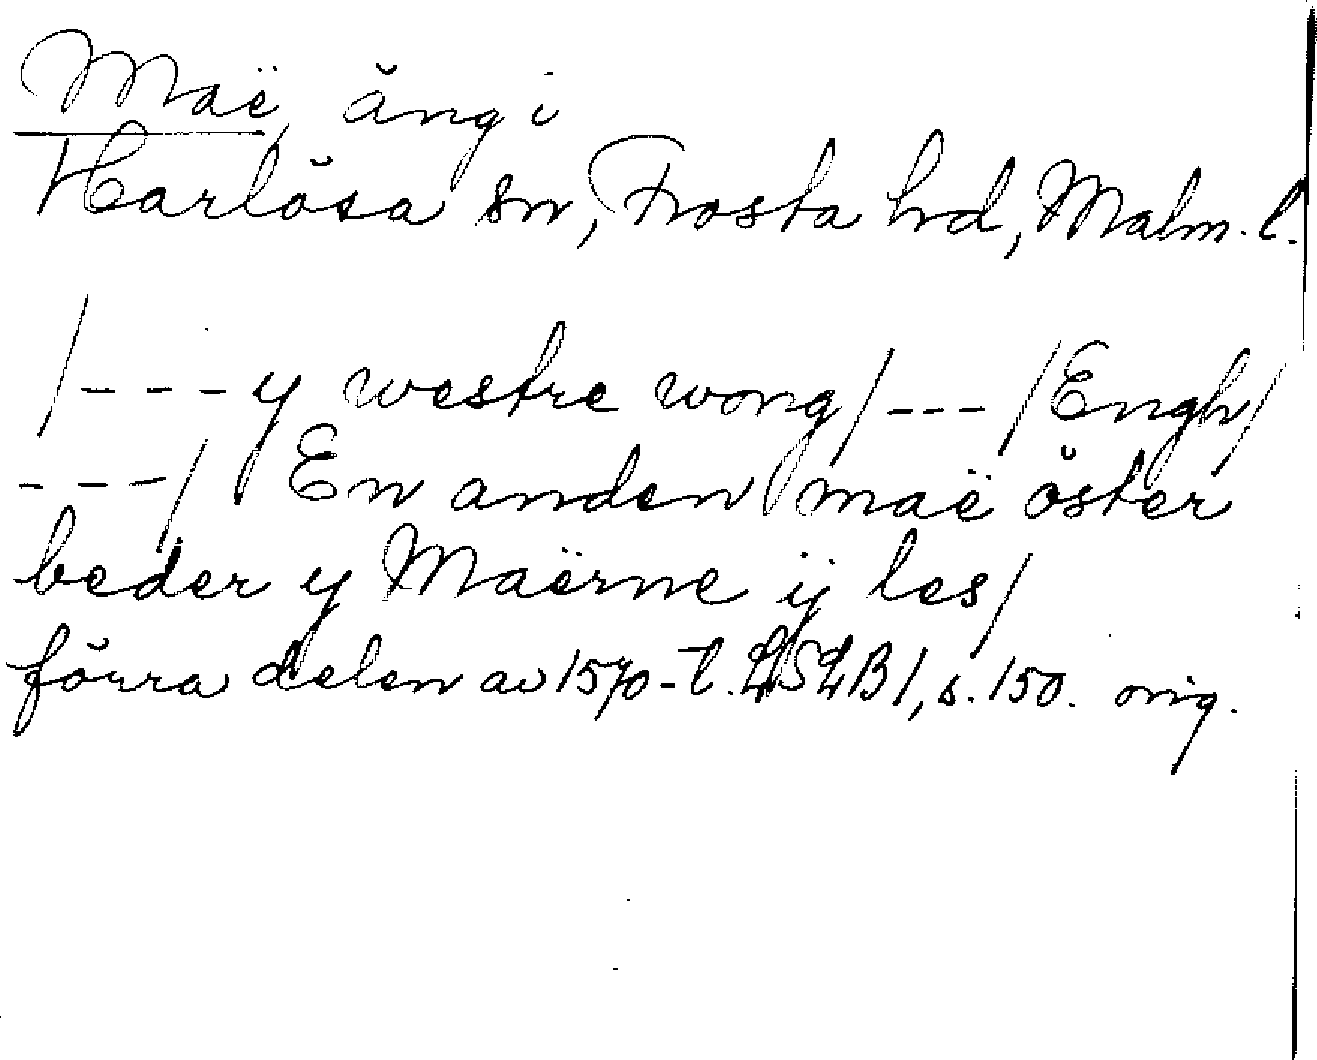 Maë, äng i
Harlösa sn, Frosta hd, Malm. l.
/---y westre wong/---/Engh/
---/ En anden maë öster
beder y Maërne ij les/
förra delen av 1570-t. LSLB 1, s. 150. orig.